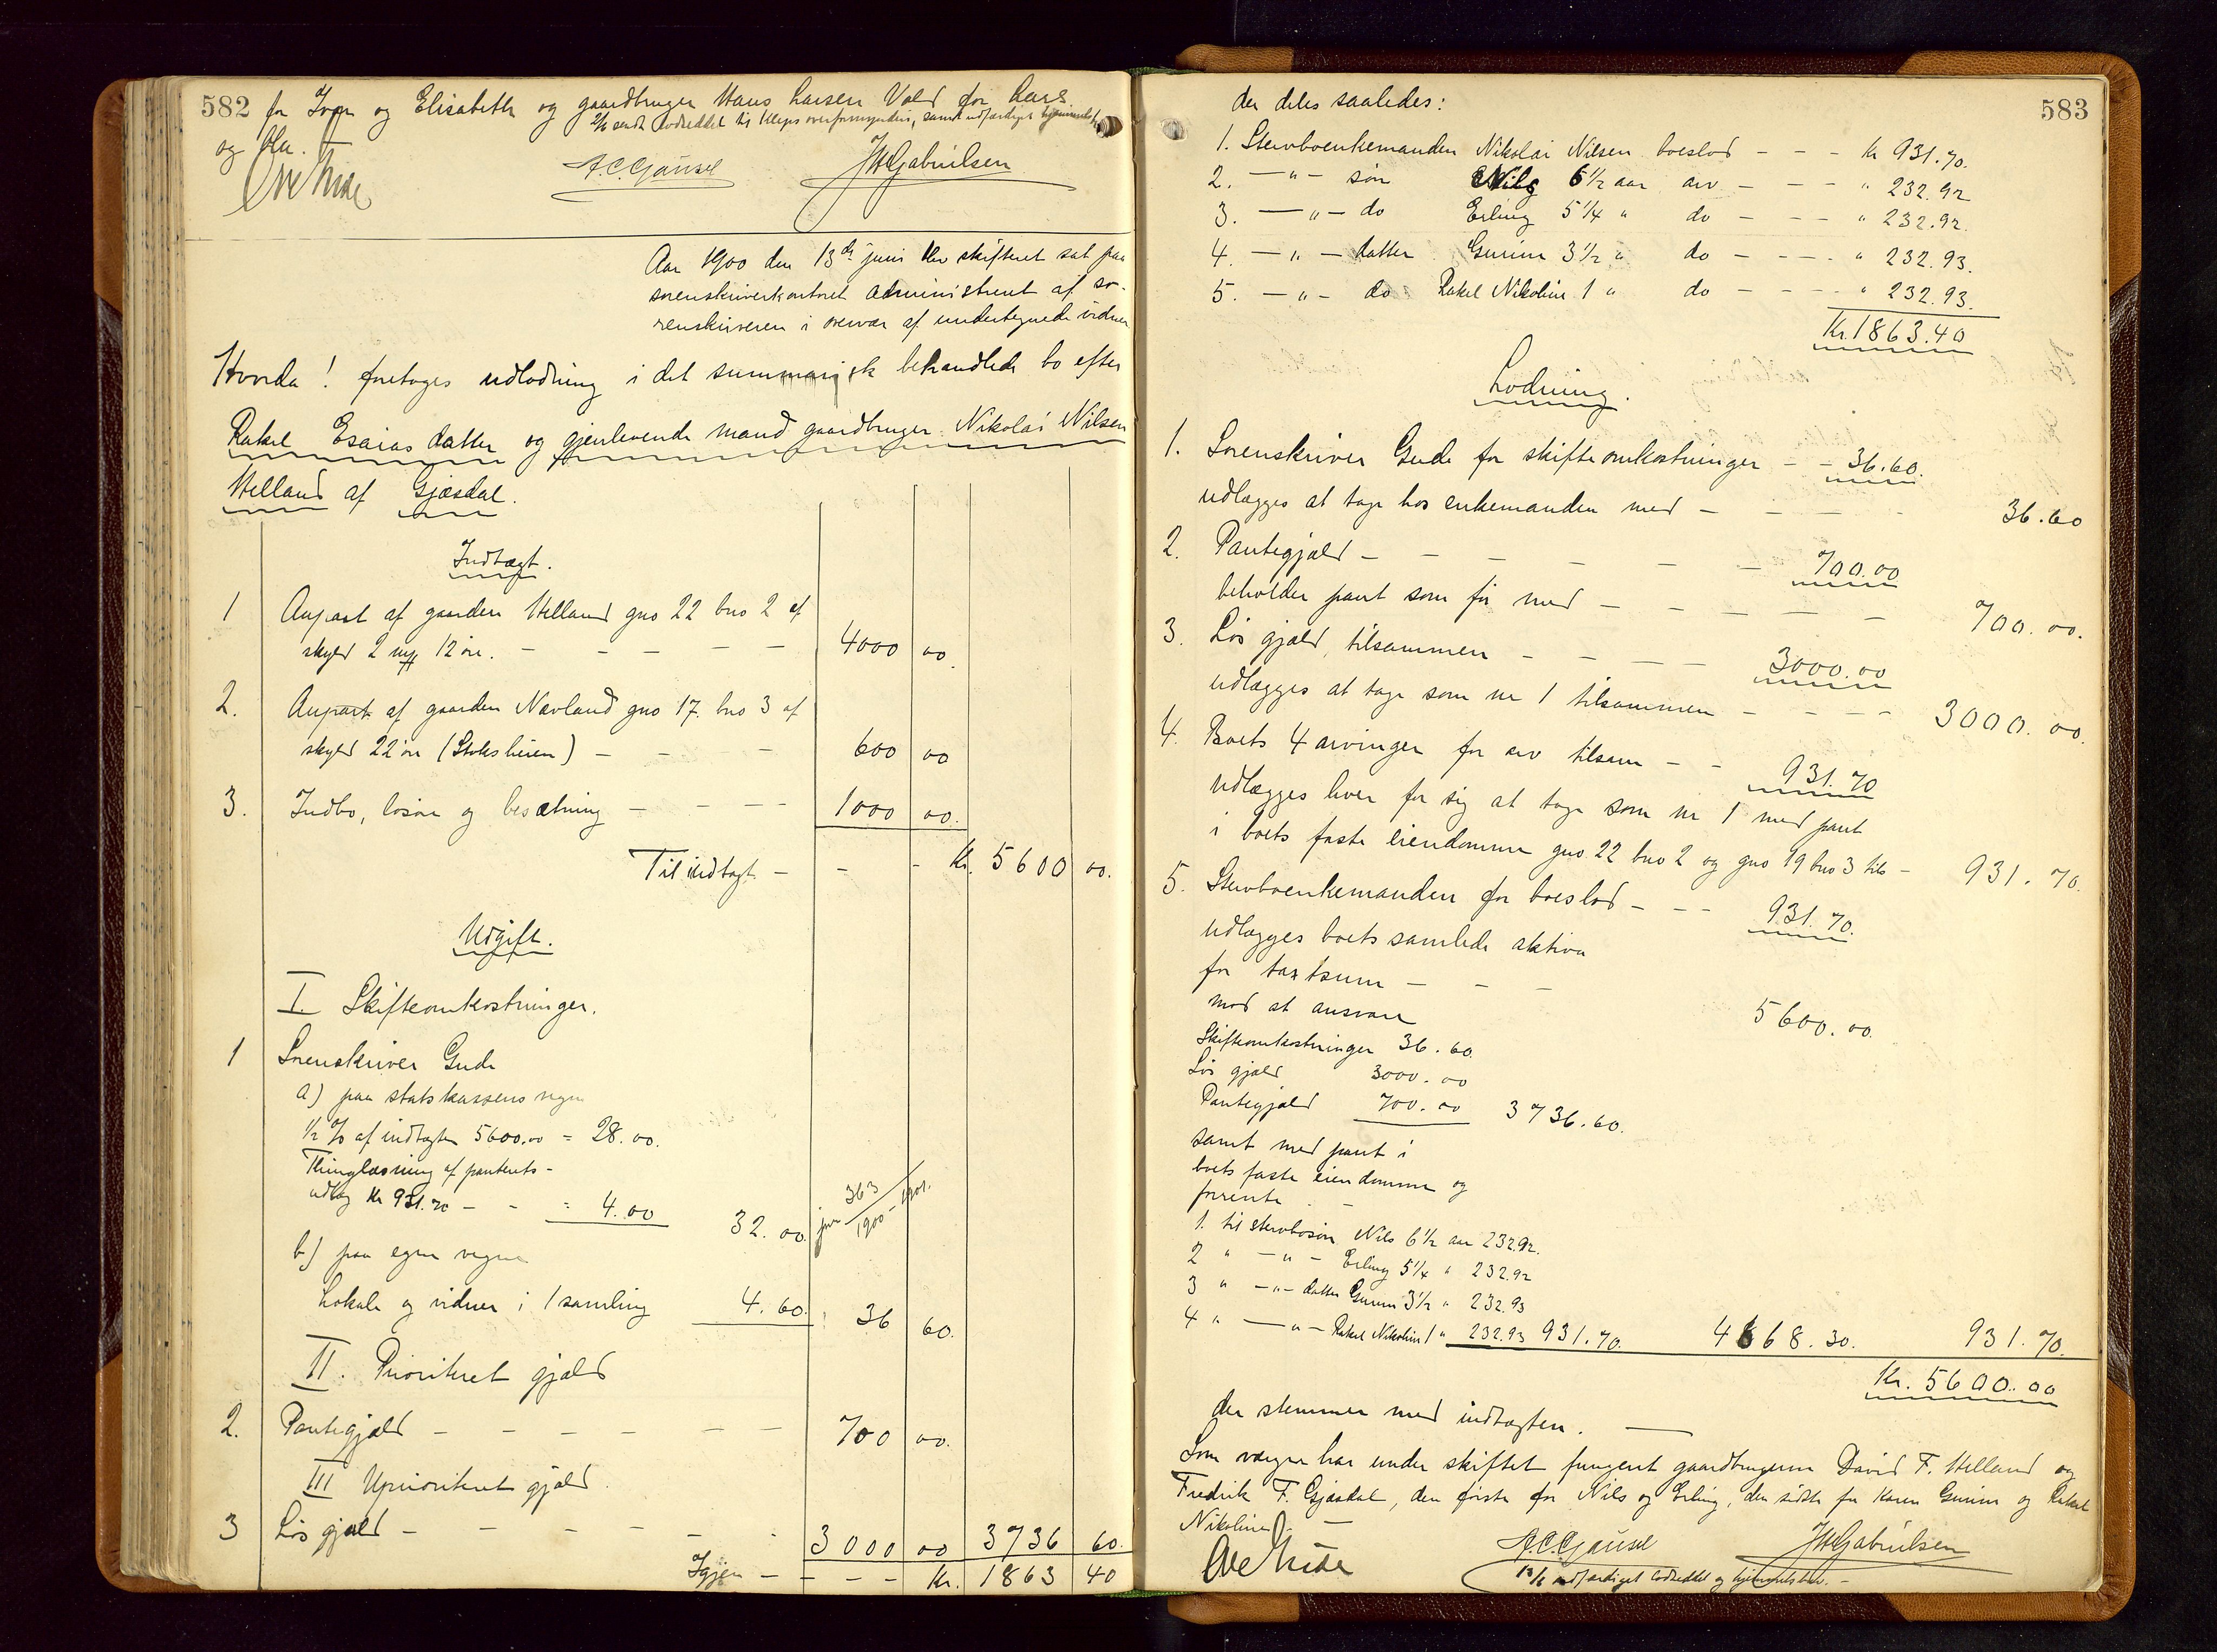 582 for Ivar og Elisabeth og gaardbruger Hans Larsen Vold for Lars
2/6 sendt lodseddel til Kleps overformynderi, samt udfærdiget hjemmelsbr
og Ola.
Ove Gude A.C. Gausel JHGabrielsen
Aar 1900 den 13de juni blev skifteret sat paa
sorenskriverkontoret administreret af so-
renskriveren i overvær af undertegnede vidner
Hvorda! foretoges udlodning i det summarisk behandlede bo efter
Rakel Esaiasdatter og gjenlevende mand gaardbruger Nikolai Nilsen
Helland af Gjæsdal.
Indtægt.
1 Anpart af gaarden Helland gno 22 bno 2 af
skyld 2 mk 12 øre. - - - - - 4000 00.
2. Anpart af gaarden Nævland gno 17. bno 3 af
skyld 22 øre (Stoksheien) - - - 600 00
3. Indbo, løsøre og besætning - - - - 1000 00.
Til indtægt - - - Kr. 5600 00.
Udgift.
I. Skifteomkostninger.
1 Sorenskriver Gude
a) paa statskassens vegne
1/2 % af indtægten 5600.00 = 28.00.
Thinglæsning af panterets-
udlæg Kr 931.70 - - = 4.00 32.00. jnr 363/1900-1901.
b) paa egne vegne
Lokale og vidner i 1 samling 4.60. 36 60.
II. Prioriteret gjæld
2. Pantegjæld - - - - - - 700 00.
III Uprioriteret gjæld.
3 Løs gjæld - - - - - - 3000 00 3736 60.
Igjen - - - - Kr. 1863 40
583
der deles saaledes:
1. Stervboenkemanden Nikolai Nilsen boeslod - - - kr 931.70.
2. - " - søn Nils 6 1/2 aar arv - - - " 232.92
3. - " - do Erling 5 1/4 " do - - - " 232.92.
4. - " - datter Gurine 3 1/2 " do - - - " 232.93.
5. - " - do Rakel Nikoline 1 " do - - - " 232.93.
Kr. 1863.40
Lodning.
1. Sorenskriver Gude for skifteomkostninger - - 36.60.
udlægges at tage hos enkemanden med - - - - 36.60
2. Pantegjæld - - - - - - 700.00
beholder pant som før med - - - - - - 700.00.
3. Løs gjæld, tilsammen - - - - 3000.00
udlægges at tage som nr 1 tilsammen - - - - 3000.00.
4. Boets 4 arvinger for arv tilsam - - 931.70
udlægges hver for sig at tage som nr 1 med pant
i boets faste eiendomme gno 22 bno 2 og gno 19 bno 3 tils - 931.70.
5. Stervboenkemanden for boeslod - - - 931.70.
udlægges boets samlede aktiva
for taxtsum - - - 5600.00.
mod at ansvare
Skifteomkostninger 36.60.
Løs gjæld 3000.00
Pantegjæld 700.00 3736.60.
samt med pant i
boets faste eiendomme og
forrente -
1. til stervbosøn Nils 6 1/2 aar 232.92.
2 " - " - Erling 5 1/4 " 232.92
3 " - " - datter Gurine 3 1/2 " 232.93
4 " - " - Rakel Nikoline 1 " 232.93 931.70. 4668.30. 931.70.
Kr. 5600.00
der stemmer med indtægten. -
Som værger har under skiftet fungeret gaardbrugerne David F. Helland og
Fredrik F. Gjæsdal, den første for Nils og Erling, den sidste for Karen Gurine og Rakel
Nikoline. -
Ove Gude A.C. Gausel JHGabrielsen
13/6 udfærdiget lodseddel og hjemmelsbrev. -